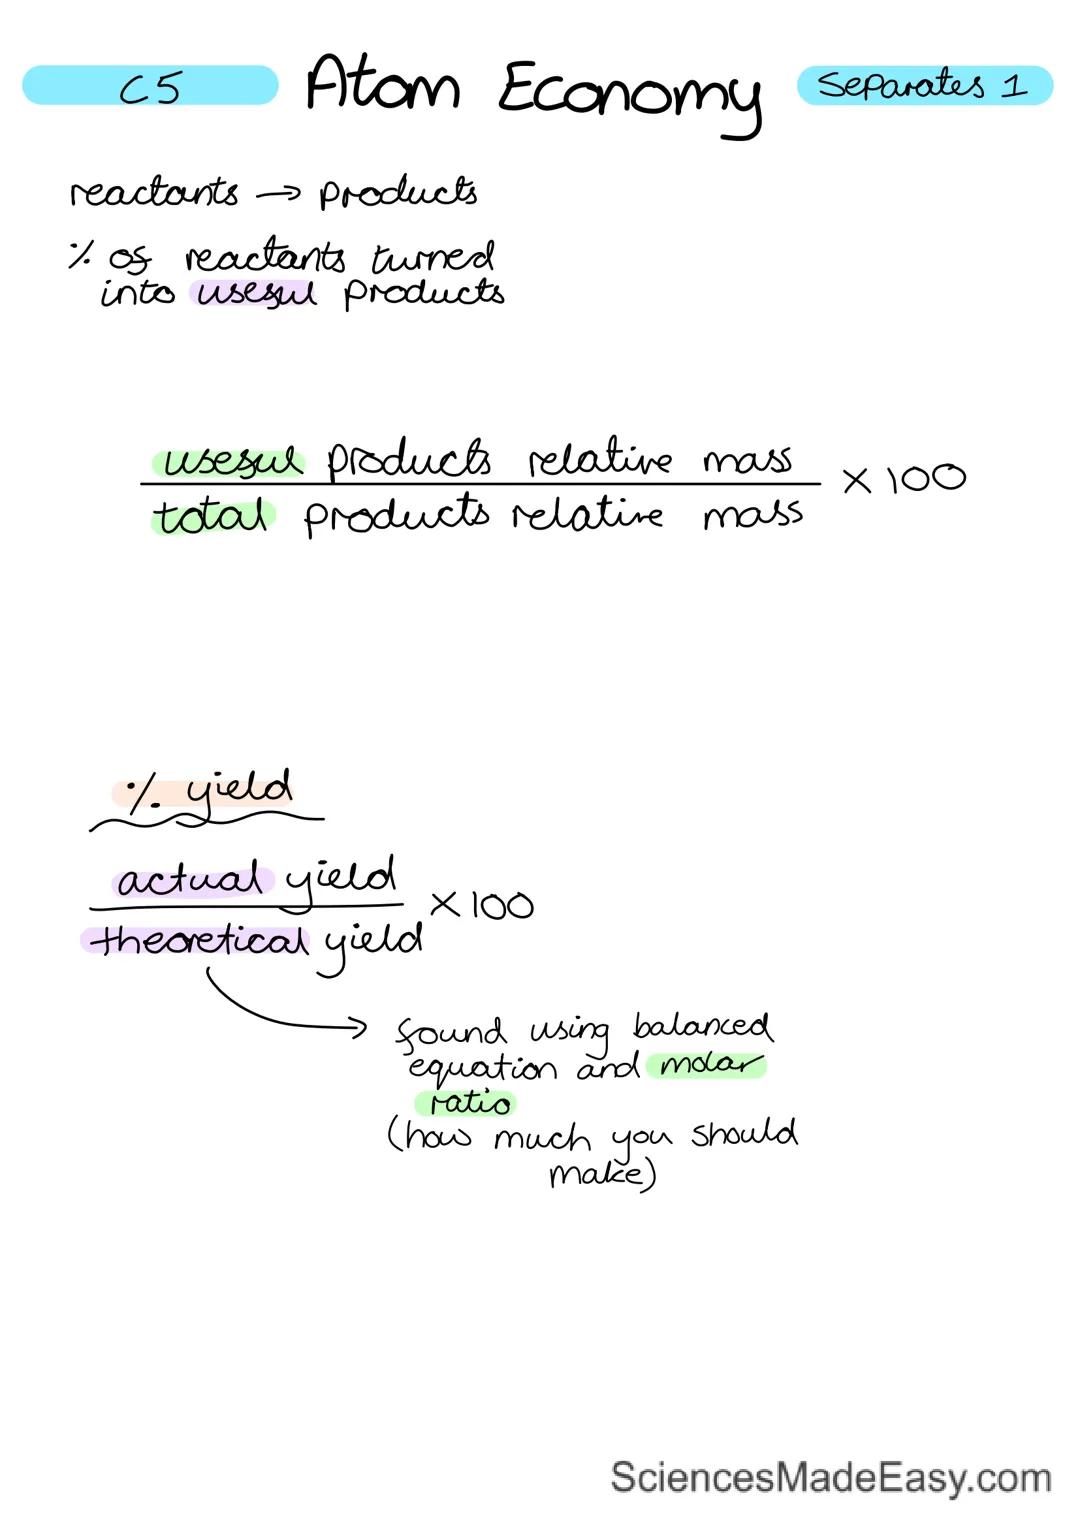 C5
Atom Economy
Separates 1
reactants → products
% of reactants turned
into useful products
useful products relative mass
total products relative mass
× 100
% yield
actual yield
theoretical yield
× 100
found using balanced
equation and molar
ratio
(how much you should
make)
SciencesMadeEasy.com